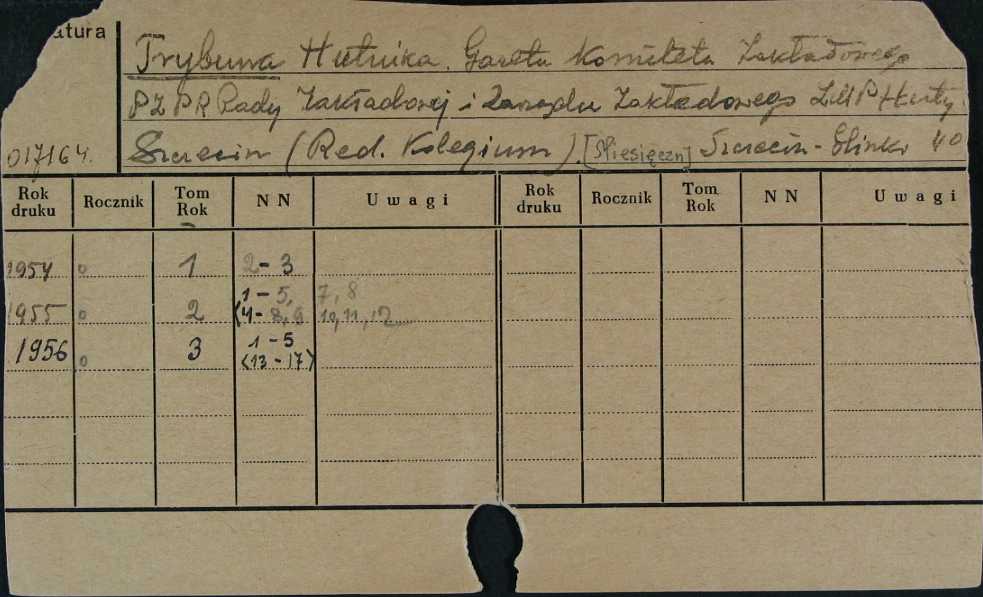 atura
Trybuna Hutnika. Gazeta Komitetu Zakładowego
PZPR Rady Zakładowej i Zarządu Zakładowego ZMP Huty
017164. Szczecin (Red. Kolegium) [Miesięczn] Szczecin - Glinki 40
Rok druku Rocznik Tom Rok NN Uwagi Rok druku Rocznik Tom Rok NN Uwagi
1954 0 1 2-3
1-5, 7, 8
1955 0 2 (4-8,9 10, 11, 12
1956 0 3 1-5
(13-17)